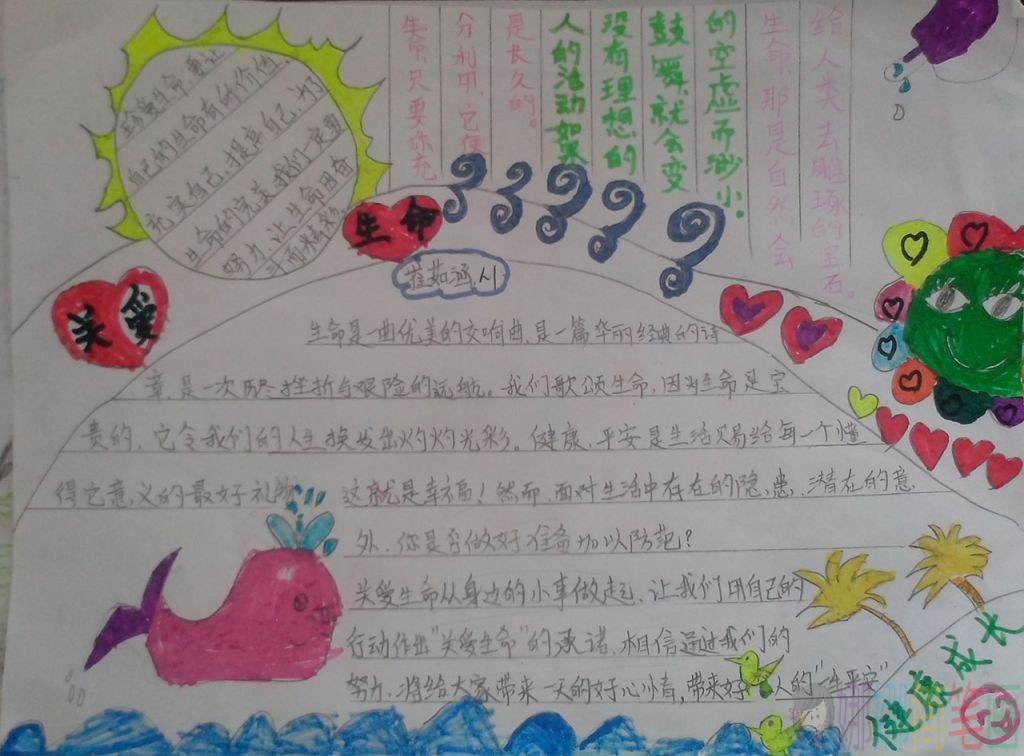 珍爱生命,要让
自己的生命有所价值。
充实自己,提高自己,为
生命的完美,我们一定要
努力,让生命因奋
斗而精彩。
给人类去雕琢的宝石。
生命,那是自然会
的空虚而渺小。
鼓舞,就会变
没有理想的
人的活动如果
是长久的。
分利用,它便
生命,只要你充
生命
关爱
崔茹涵
生命是一曲优美的交响曲,是一篇华丽经典的诗
章,是一次挫折与艰险的远航。我们歌颂生命,因为生命是宝
贵的,它令我们的人生换发出灼灼光彩。健康、平安是生活赐给每一个懂
得它意义的最好礼物 这就是幸福!然而,面对生活中存在的隐患,潜在的意
外,你是否做好准备加以防范?
关爱生命从身边的小事做起,让我们用自己的
行动作出“关爱生命”的承诺,相信通过我们的
努力,将给大家带来一天的好心情,带来好人的“一生平安”
健康成长